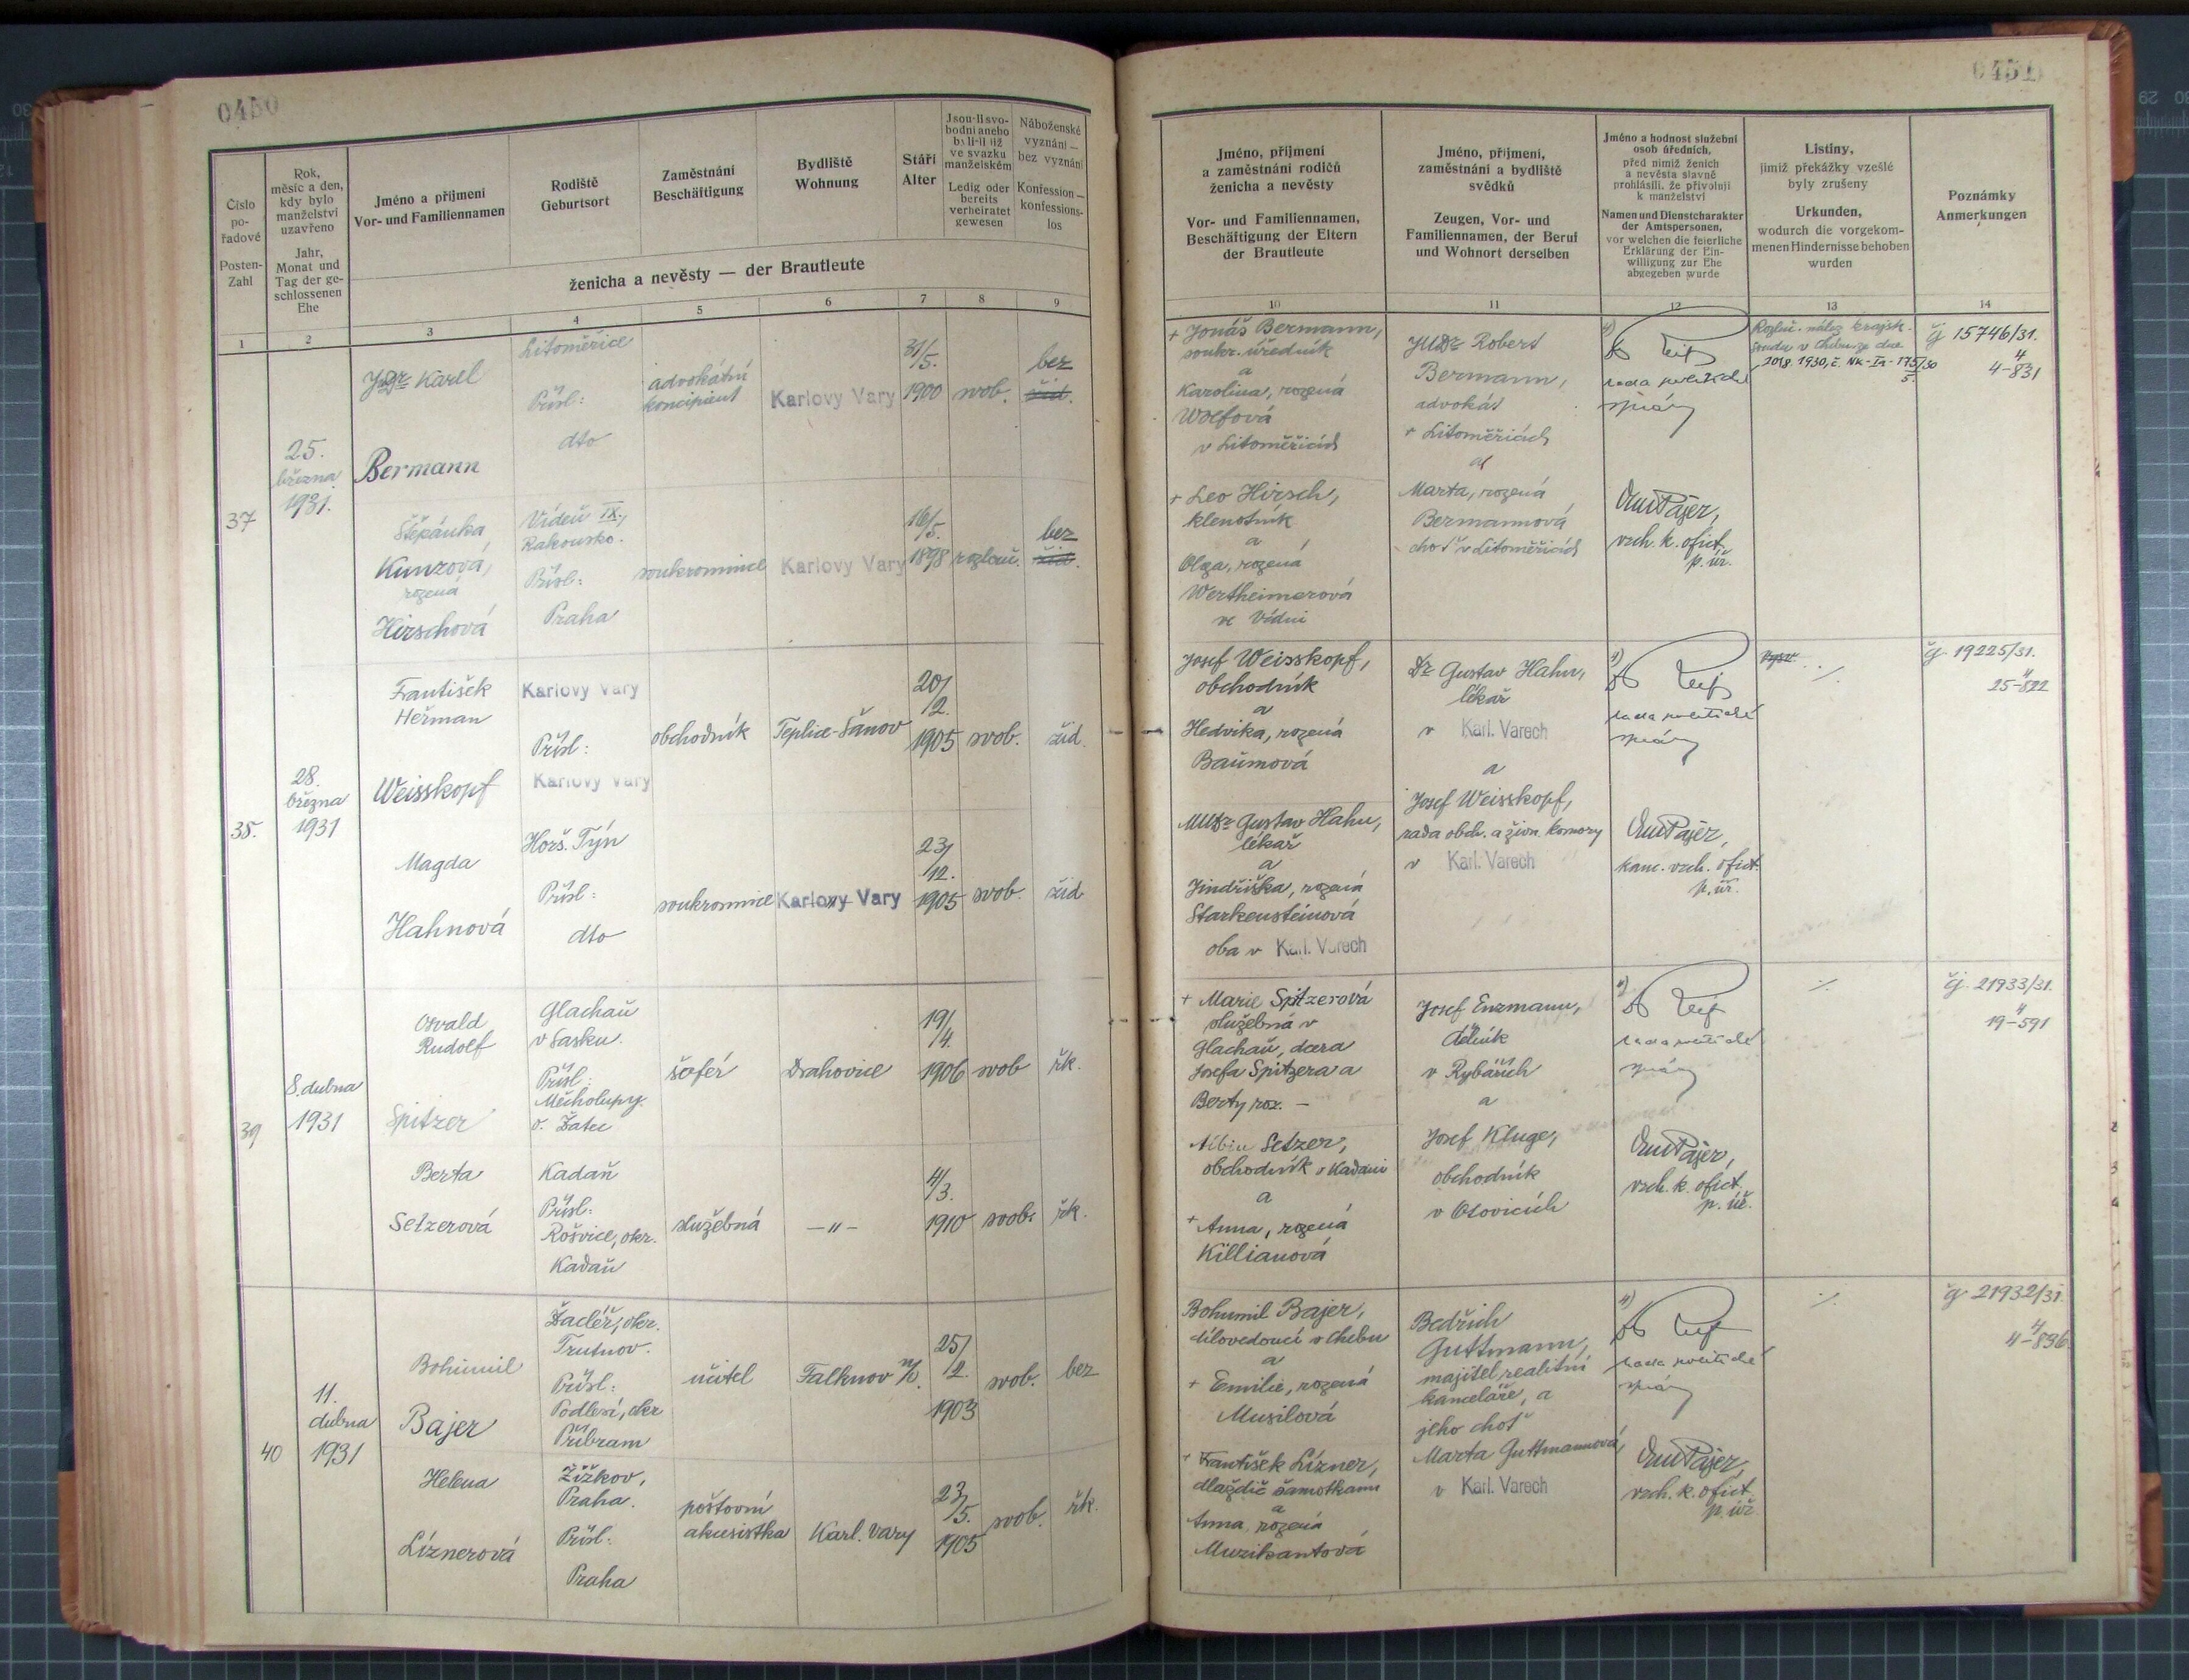 0450
Číslo
po-
řadové
Posten-
Zahl
Rok,
měsíc a den,
kdy bylo
manželství
uzavřeno
Jahr,
Monat und
Tag der ge-
schlossenen
Ehe
Jméno a příjmení
Vor- und Familiennamen
Rodiště
Geburtsort
Zaměstnání
Beschäftigung
Bydliště
Wohnung
Stáří
Alter
Jsou-li svo-
bodni anebo
byli-li již
ve svazku
manželském
Ledig oder
bereits
verheiratet
gewesen
Náboženské
vyznání —
bez vyznání
Konfession —
konfessions-
los
ženicha a nevěsty — der Brautleute
1 2 3 4 5 6 7 8 9
37
25.
března
1931.
JUDr Karel
Bermann
Litoměřice
Přísl:
dto
advokátní
koncipient
Karlovy Vary
31/5.
1900
svob.
bez
žid.
Štěpánka
Kunzová,
rozená
Hirschová
Vídeň IX.,
Rakousko.
Přísl:
Praha
soukromnice
Karlovy Vary
16/5.
1898
rozlouč.
bez
žid.
38.
28.
března
1931
František
Heřman
Weisskopf
Karlovy Vary
Přísl:
Karlovy Vary
obchodník
Teplice-Šanov
20/2.
1905
svob.
žid.
Magda
Hahnová
Horš. Týn
Přísl:
dto
soukromnice
Karlovy Vary
23/12.
1905
svob.
žid
39
8. dubna
1931
Osvald
Rudolf
Spitzer
Glachau
v Sasku.
Přísl:
Měcholupy.
o. Žatec
šofér
Drahovice
19/4.
1906
svob
řk.
Berta
Setzerová
Kadaň
Přísl:
Rošvice, okr.
Kadaň
služebná
—"—
4/3.
1910
svob.
řk.
40
11.
dubna
1931
Bohumil
Bajer
Žacléř, okr.
Trutnov.
Přísl:
Podlesí, okr
Příbram
učitel
Falknov n/O.
25/2.
1903
svob.
bez
Helena
Líznerová
Žižkov,
Praha.
Přísl:
Praha
poštovní
akcesistka
Karl. Vary
23/5.
1905
svob.
řk.
0451
Jméno, příjmení
a zaměstnání rodičů
ženicha a nevěsty
Vor- und Familiennamen,
Beschäftigung der Eltern
der Brautleute
Jméno, příjmení,
zaměstnání a bydliště
svědků
Zeugen, Vor- und
Familiennamen, der Beruf
und Wohnort derselben
Jméno a hodnost služební
osob úředních,
před nimiž ženich
a nevěsta slavně
prohlásili, že přivolují
k manželství
Namen und Dienstcharakter
der Amtspersonen,
vor welchen die feierliche
Erklärung der Ein-
willigung zur Ehe
abgegeben wurde
Listiny,
jimiž překážky vzešlé
byly zrušeny
Urkunden,
wodurch die vorgekom-
menen Hindernisse behoben
wurden
Poznámky
Anmerkungen
10 11 12 13 14
+ Jonáš Bermann,
soukr. úředník
a
Karolina, rozená
Wolfová
v Litoměřicích
+ Leo Hirsch,
klenotník
a
Olga, rozená
Wertheimerová
ve Vídni
JUDr Robert
Bermann,
advokát
v Litoměřicích
a
Marta, rozená
Bermannová
choť v Litoměřicích
rada politické
správy
Em Pajer,
vrch. k. ofict.
p. úř.
Rozluč. nález krajsk.
soudu v Chebu ze dne
20/8. 1930, č. Nk-Ia-175/30
5.
čj 15746/31.
4
4-831
Josef Weisskopf,
obchodník
a
Hedvika, rozená
Baumová
MUDr Gustav Hahn,
lékař
a
Jindřiška, rozená
Starkensteinová
oba v Karl. Varech
Dr Gustav Hahn,
lékař
v Karl. Varech
a
Josef Weisskopf,
rada obch. a živn. komory
v Karl. Varech
rada politické
správy
Em Pajer,
kanc. vrch. ofict.
p. úř.
./.
čj 19225/31.
4
25-822
+ Marie Spitzerová
služebná v
Glachau, dcera
Josefa Spitzera a
Berty roz. —
Albin Setzer,
obchodník v Kadani
a
+ Anna, rozená
Killianová
Josef Enzmann,
dělník
v Rybářích
a
Josef Kluge,
obchodník
v Otovicích
rada politické
správy
Em Pajer,
vrch. k. ofict.
p. úř.
./.
čj 21933/31.
4
19-591
Bohumil Bajer,
dílovedoucí v Chebu
a
+ Emilie, rozená
Musilová
+ František Lízner,
dlaždič šamotkami
a
Anna, rozená
Muzikantová
Bedřich
Guttmann,
majitel realitní
kanceláře, a
jeho choť
Marta Guttmannová,
v Karl. Varech
rada politické
správy
Em Pajer,
vrch. k. ofict.
p. úř.
./.
čj 21932/31.
4
4-896